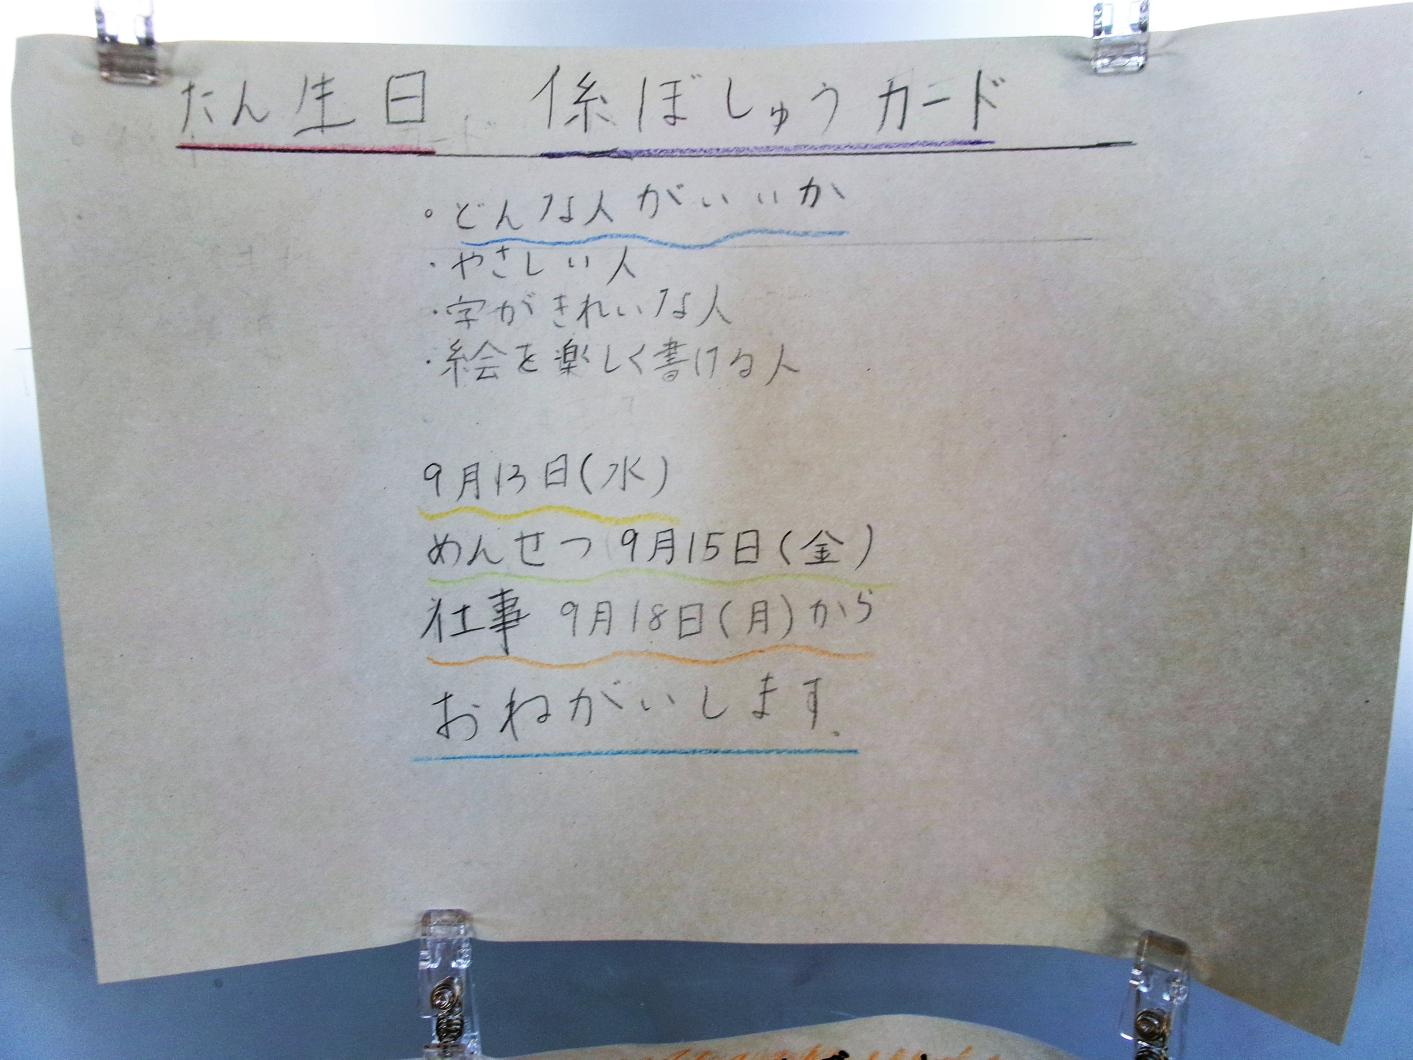 たん生日 係ぼしゅうカード
。どんな人がいいか
・やさしい人
・字がきれいな人
・絵会を楽しく書ける人
9月13日(水)
めんせつ 9月15日(金)
仕事 9月18日(月)から
おねがいします。